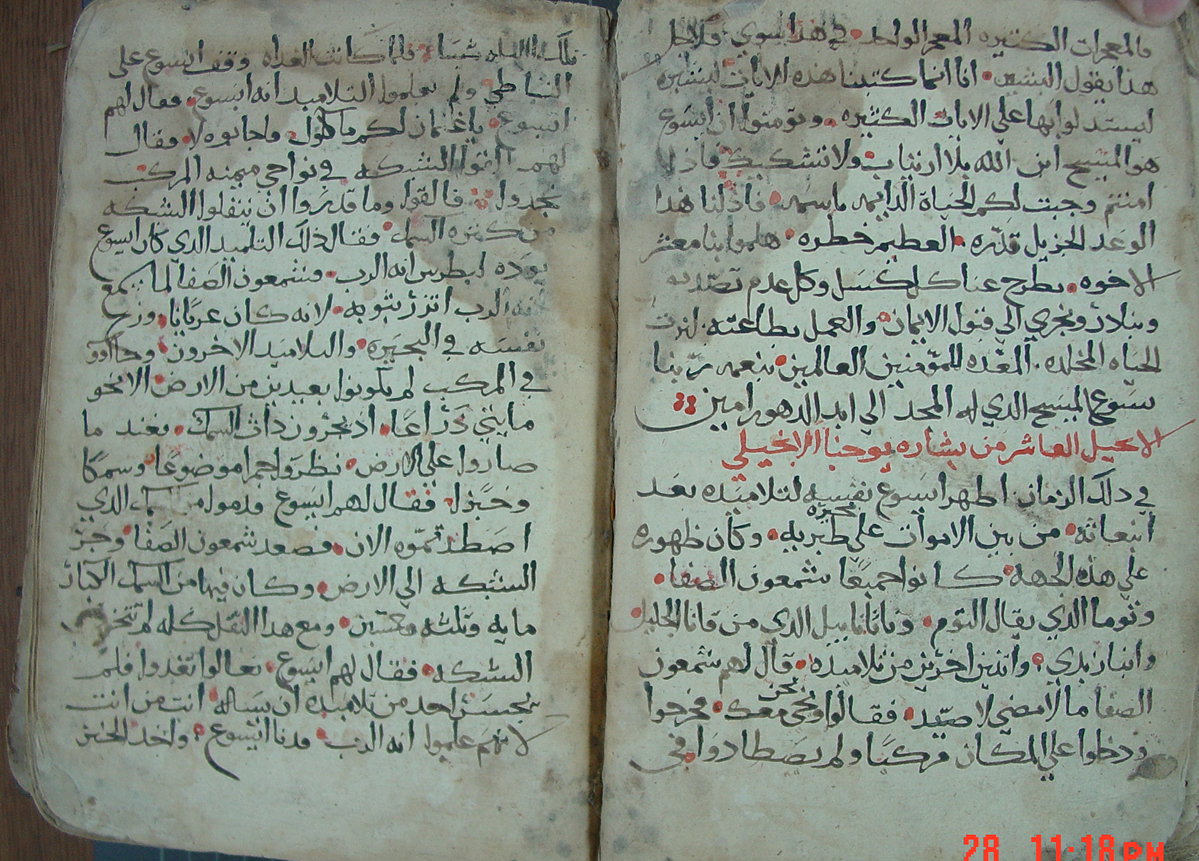 فالمعجزات الكثيره المعجز الواحد في هذا يسوي فلاجل
هذا يقول البشير انا انما كتبنا هذه الايات اليسيره
ليستدلوا بها على الايات الكثيره وتومنوا ان ايسوع
هو المسيح ابن الله بلا ارتياب ولا تشكيك فاذا
امنتم وجبت لكم الحياة الدايمه باسمه فاذ لنا هذا
الوعد الجزيل قدره العظيم خطره هلموا بنا معشر
الاخوه نطرح عنا كل كسل وكل عدم تصديق
ونبادر ونجري الى قبول الايمان والعمل بطاعته لنرث
الحياه المخلده المعده للمومنين العالمين بنعمه ربنا
يسوع المسيح الذي له المجد الى ابد الدهور امين
الانجيل العاشر من بشاره يوحنا الانجيلي
في ذلك الزمان اظهر ايسوع نفسه لتلاميذه بعد
انبعاثه من بين الاموات على بحيره طبريه وكان ظهوره
على هذه الجهه كانوا جميعا شمعون الصفا
وتوما الذي يقال التوم وناثانابيل الذي من قانا الجليل
وابنا زبدي واثنين اخرين من تلاميذه قال لهم شمعون
الصفا مالا امضي لاصيد فقالوا ونحن نجي معك فخرجوا
ودخلوا على المكان مركبا ولم يصطادوا في
تلك الليله شيئا فلما كانت الغداه وقف ايسوع على
الشاطي ولم يعلموا التلاميذ انه ايسوع فقال لهم
ايسوع ياغلمان لكم ماكول واجابوه لا وقال
لهم القوا الشبكه في نواحي ميمنه المركب
تجدوا فالقوا وما قدروا ان ينقلوا الشبكه
من كثره السمك فقال ذلك التلميذ الذي كان ايسوع
يوده لبطرس انه الرب وشمعون الصفا لما سمع
انه الرب اتزر بثوبه لانه كان عريانا وزج
نفسه في البحيره والتلاميذ الاخرون وجاووا
في المركب لم يكونوا بعيدين من الارض الا نحو
مايتي ذراعا اذ يجرون ذات السمك فعند ما
صاروا على الارض نظروا جمرا موضوعا وسمكا
وخبزا فقال لهم ايسوع قدموا من السمك الذي
اصطدتموه الان فصعد شمعون الصفا وجز
الشبكه الى الارض وكان فيها من السمك الكبار
مايه وثلثه وخمسين ومع هذا الثقل كله لم تتخرق
الشبكه فقال لهم ايسوع تعالوا تغدوا فلم
يجسر احد من تلاميذه ان يساله انت من انت
لانهم علموا انه الرب فدنا ايسوع واخذ الخبز
28 11:18 PM